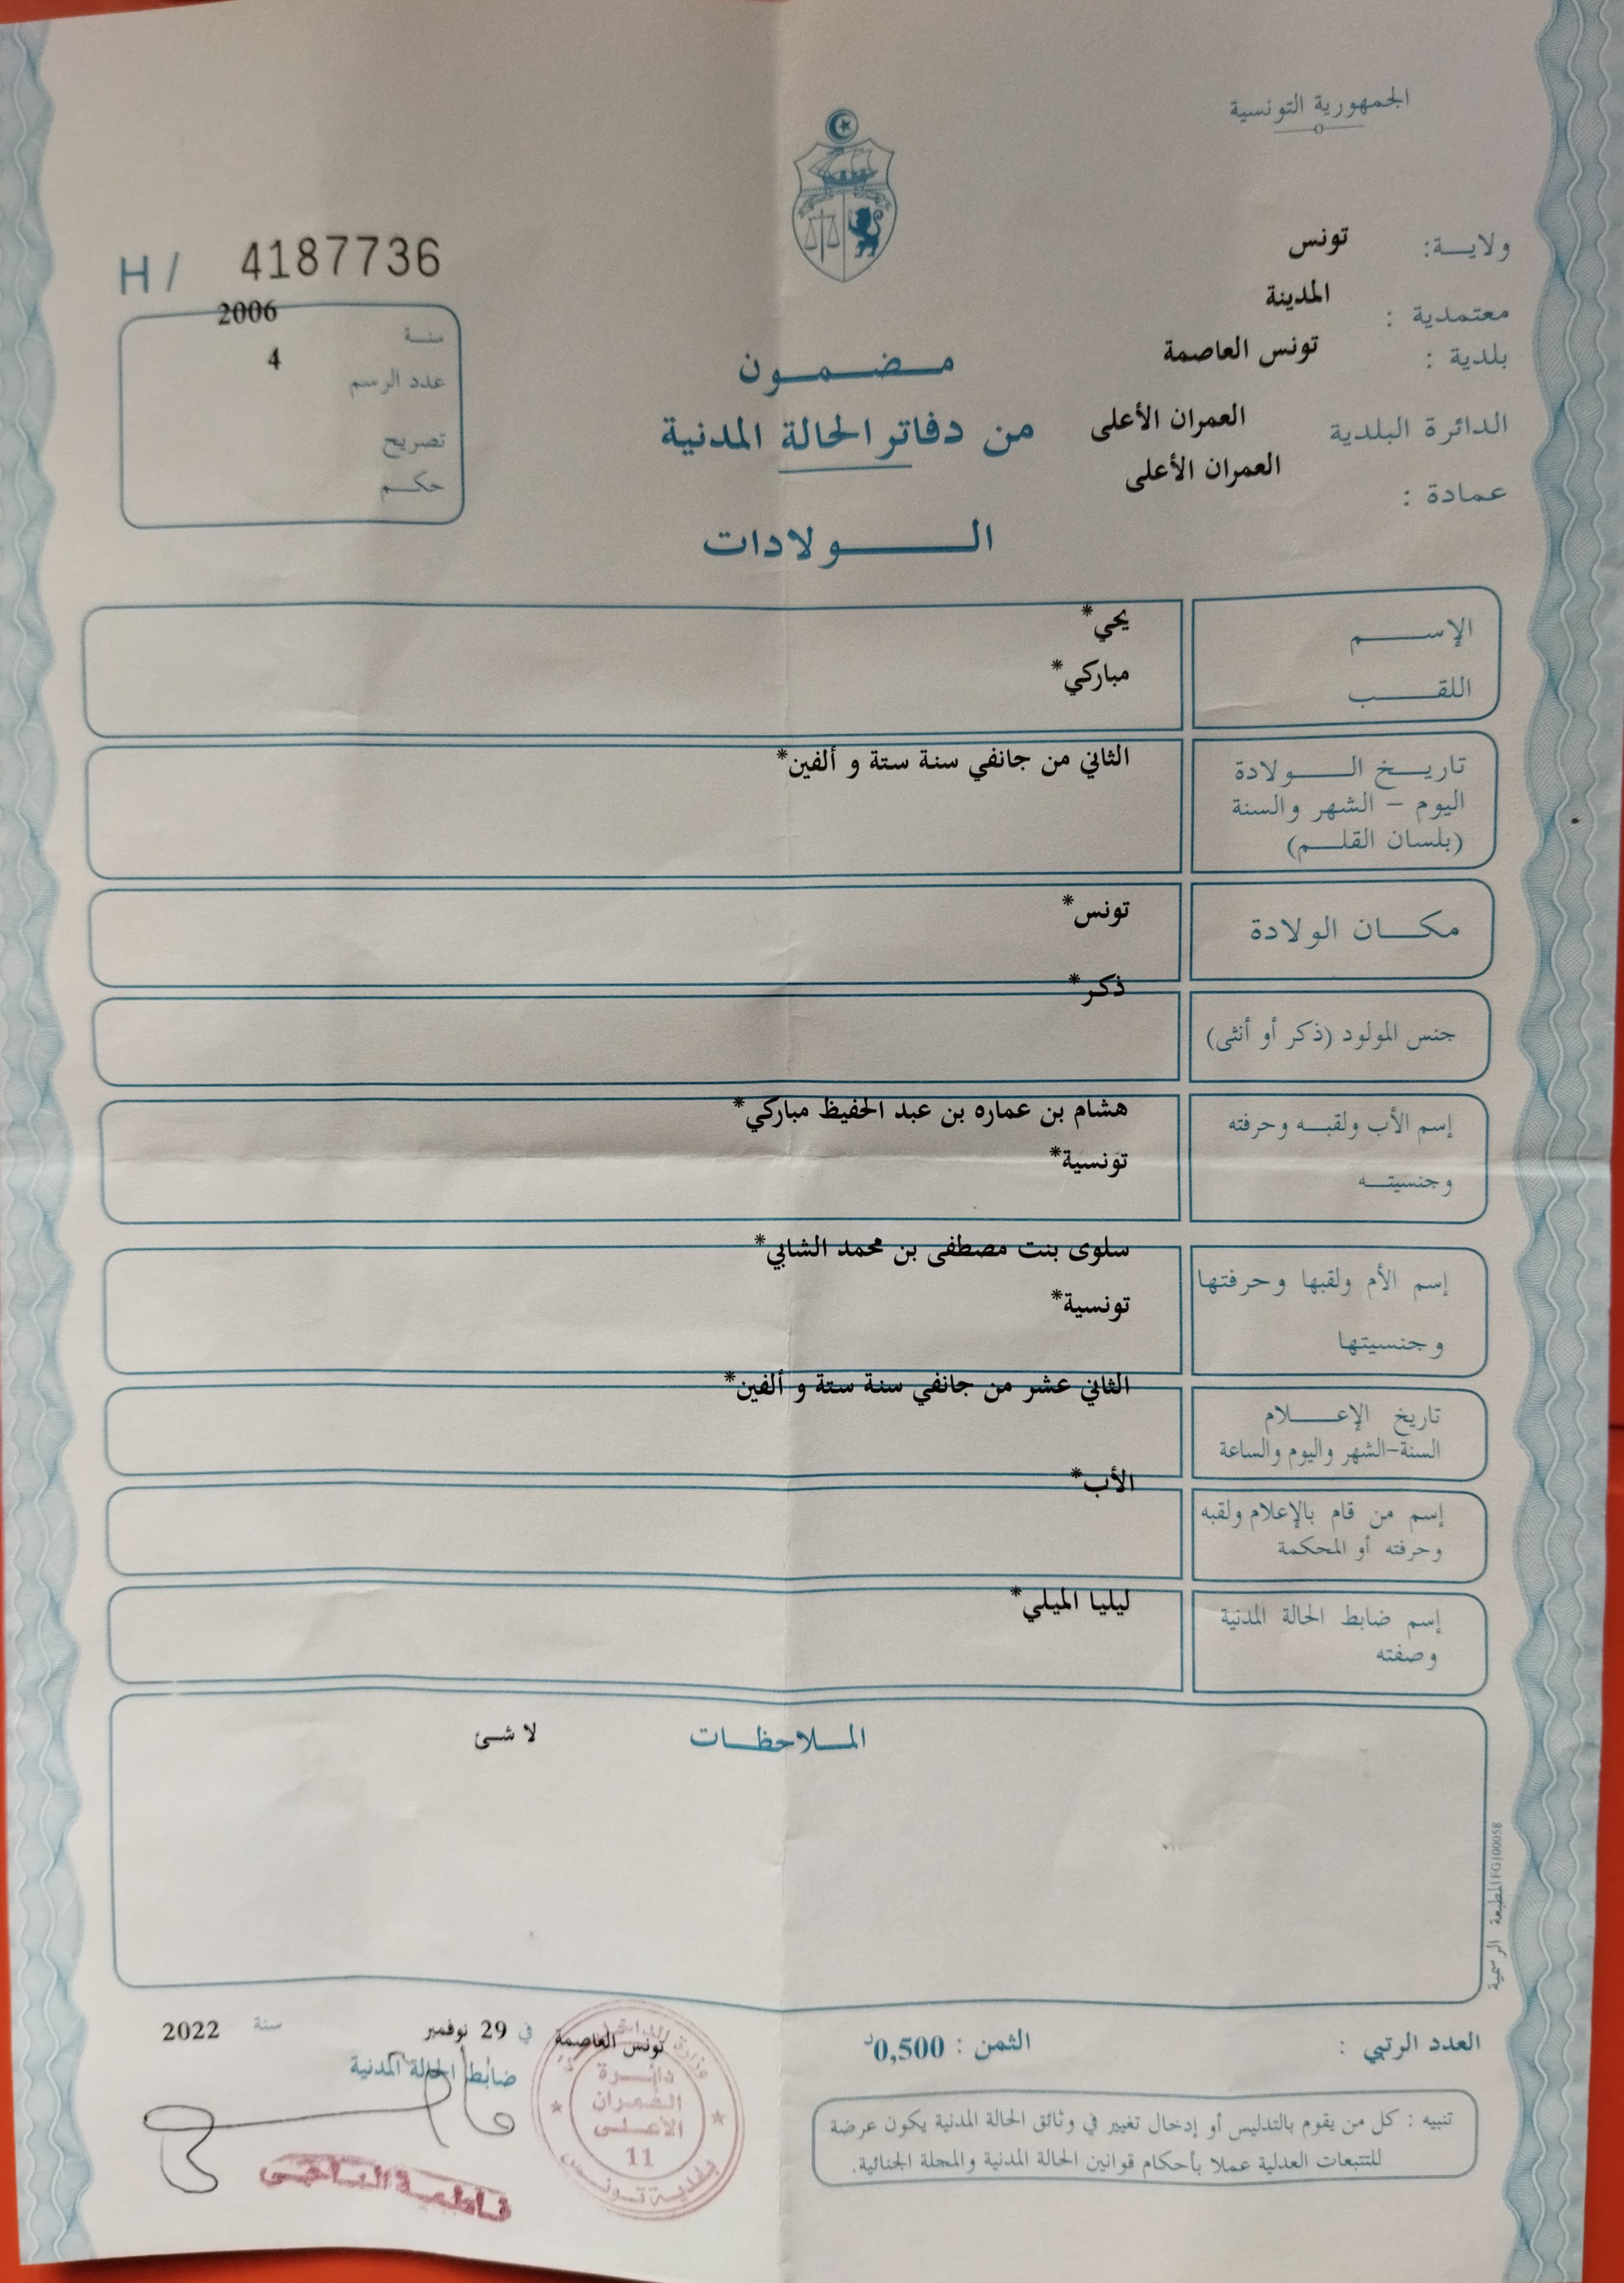 الجمهورية التونسية
ولاية: تونس
معتمدية : المدينة
بلدية : تونس العاصمة
الدائرة البلدية العمران الأعلى
عمادة : العمران الأعلى
H / 4187736
سنة 2006
عدد الرسم 4
تصريح
حكم
مضمون
من دفاتر الحالة المدنية
الولادات
الإسم يحي*
اللقب مباركي*
تاريخ الولادة الثاني من جانفي سنة ستة و ألفين*
اليوم - الشهر والسنة
(بلسان القلم)
مكان الولادة تونس*
جنس المولود (ذكر أو أنثى) ذكر*
إسم الأب ولقبه وحرفته هشام بن عماره بن عبد الحفيظ مباركي*
وجنسيته تونسية*
إسم الأم ولقبها وحرفتها سلوى بنت مصطفى بن محمد الشابي*
وجنسيتها تونسية*
تاريخ الإعلام الثاني عشر من جانفي سنة ستة و ألفين*
السنة-الشهر واليوم والساعة
إسم من قام بالإعلام ولقبه الأب*
وحرفته أو المحكمة
إسم ضابط الحالة المدنية ليليا الميلي*
وصفته
الملاحظات لا شئ
المطبعة الرسمية FG100058
العدد الرتبي :
الثمن : 0,500د
تونس العاصمة في 29 نوفمبر سنة 2022
ضابط الحالة المدنية
دائرة
العمران
الأعلى
11
بلدية تونس
تنبيه : كل من يقوم بالتدليس أو إدخال تغيير في وثائق الحالة المدنية يكون عرضة
للتتبعات العدلية عملا بأحكام قوانين الحالة المدنية والمجلة الجنائية.